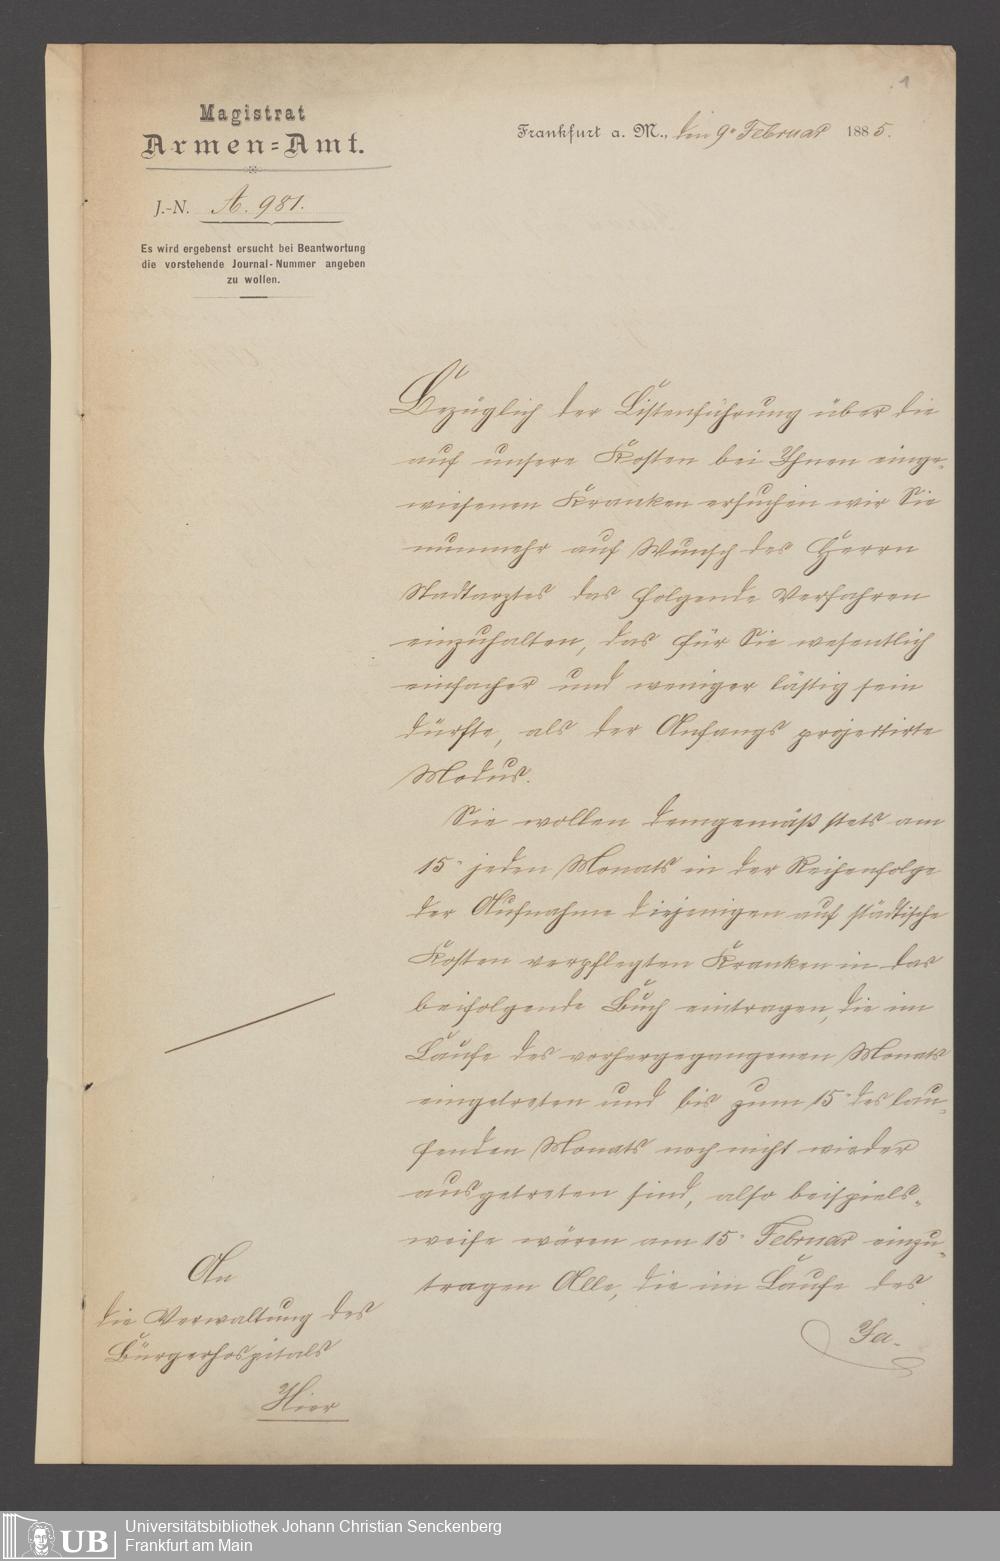 1
Magistrat
Armen=Amt.
Frankfurt a. M., den 9ᵉ Februar 1885.
J.-N. A. 981.
Es wird ergebenst ersucht bei Beantwortung
die vorstehende Journal-Nummer angeben
zu wollen.
Bezüglich der Listenführung über die
auf unsere Kosten bei Ihnen einge-
wiesenen Kranken ersuchen wir Sie
nunmehr auf Wunsch des Herrn
Stadtarztes das folgende Verfahren
einzuhalten, das für Sie wesentlich
einfacher und weniger lästig sein
dürfte, als der Anfangs projektirte
Modus.
Sie wollen demgemäß stets am
15ᵗ jeden Monats in der Reihenfolge
der Aufnahme diejenigen auf städtische
Kosten verpflegten Kranken in das
beifolgende Buch eintragen, die im
Laufe des vorhergegangenen Monats
eingetreten und bis zum 15ᵗ des lau-
fenden Monats noch nicht wieder
ausgetreten sind, also beispiels-
weise wären am 15ᵗ Februar einzu-
tragen Alle, die im Laufe des
Ja-
An
die Verwaltung des
Bürgerhospitals
Hier
UB
Universitätsbibliothek Johann Christian Senckenberg
Frankfurt am Main